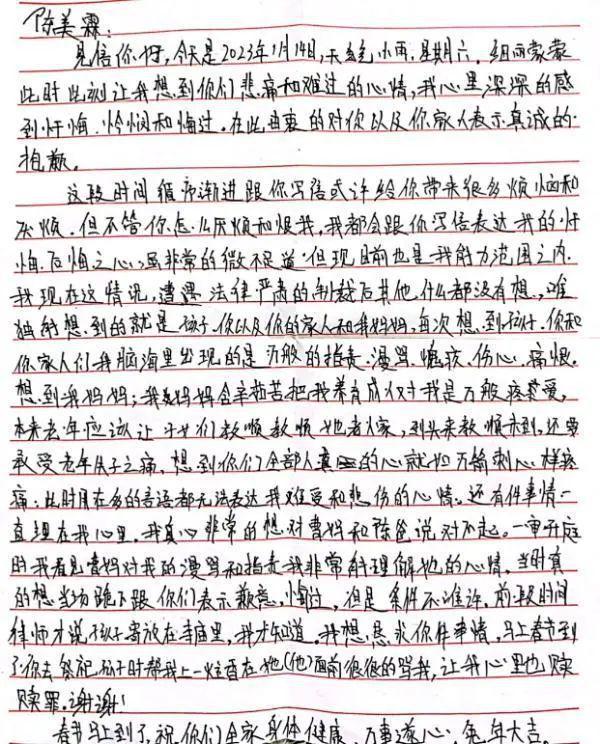 陈美霖:
见信你好,今天是2023年1月14日,天气 小雨,星期六。细雨蒙蒙
此时此刻让我想到你们悲痛和难过的心情,我心里深深的感
到忏悔、怜悯和悔过。在此由衷的对你以及你家人表示真诚的
抱歉。
这段时间循序渐进跟你写信或许给你带来很多烦恼和
厌烦。但不管你怎么厌烦和恨我,我都会跟你写信表达我的忏
悔。后悔之心,虽非常的微不足道,但现目前也是我能力范围之内
我现在这情况,遭遇法律严肃的制裁后其他什么都没有想,唯
独能想到的就是孩子、你以及你的家人和我妈妈,每次想到孩子、你和
你家人们我脑海里出现的是万般的指责、漫骂、伤心、痛恨。
想到我妈妈;我妈妈含辛茹苦把我养育成对我是万般疼爱,
本来老年应该让子女们孝顺孝顺她老人家,到头来孝顺未到,还要
承受老年失子之痛,想到你们全部人的心就如万箭刺心一样疼
痛;此时用在多的言语都无法表达我难受和悲伤的心情。还有件事情一
直埋在我心里。我真心非常的想对曹妈和陈爸说对不起。一审开庭
时我看见曹妈对我的漫骂和指责我非常能理解她的心情,当时真
的想当场跪下跟你们表示歉意,悔过,但是条件不准许。前段时间
律师才说孩子寄放在寺庙里,我才知道。我想恳求你件事情,马上春节到
了你去祭祀孩子时帮我上一炷香在她(他)面前狠狠的骂我,让我心里也赎
赎罪。谢谢!
春节马上到了,祝你们全家身体健康、万事遂心、兔年大吉。